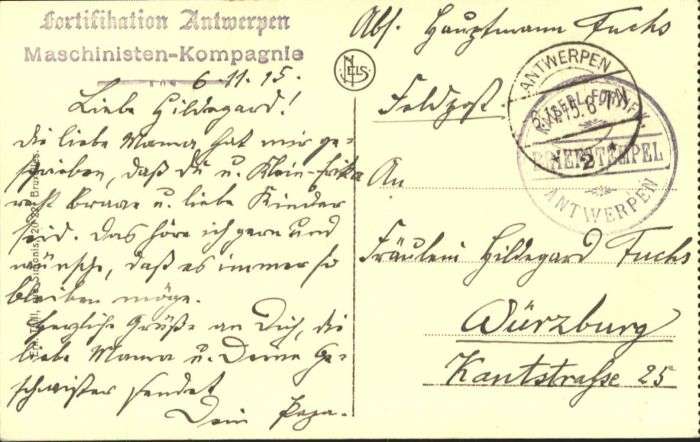 Fortifikation Antwerpen
Maschinisten-Kompagnie
6.11.15.
Liebe Hildegard!
die liebe Mama hat mir ge-
schrieben, daß du u. Klein-Erika
recht brave u. liebe Kinder
seid. Das höre ich gern und
wünsche, daß es immer so
bleiben möge.
Herzliche Grüße an Dich, die
liebe Mama u. Deine Ge-
schwister sendet
Dein Papa.
NELS
Abs. Hauptmann Fuchs
Feldpost.
ANTWERPEN
2
BRIEFSTEMPEL
ANTWERPEN
An
Fräulein Hildegard Fuchs
Würzburg
Kantstrasse 25